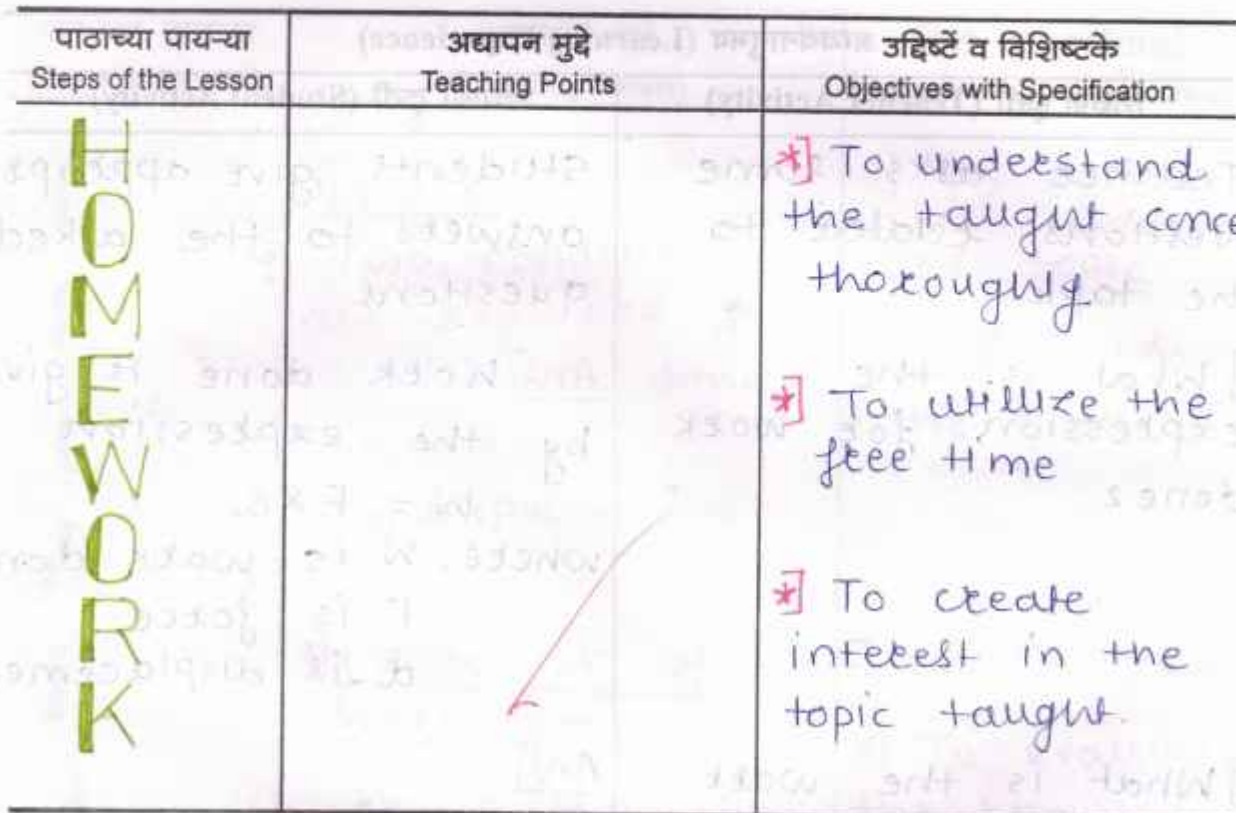 पाठाच्या पायऱ्या
Steps of the Lesson
अद्यापन मुद्दे
Teaching Points
उद्दिष्टें व विशिष्टके
Objectives with Specification
HOMEWORK
*] To understand
the taught conce
thoroughly
*] To utillize the
free time
*] To create
interest in the
topic taught.